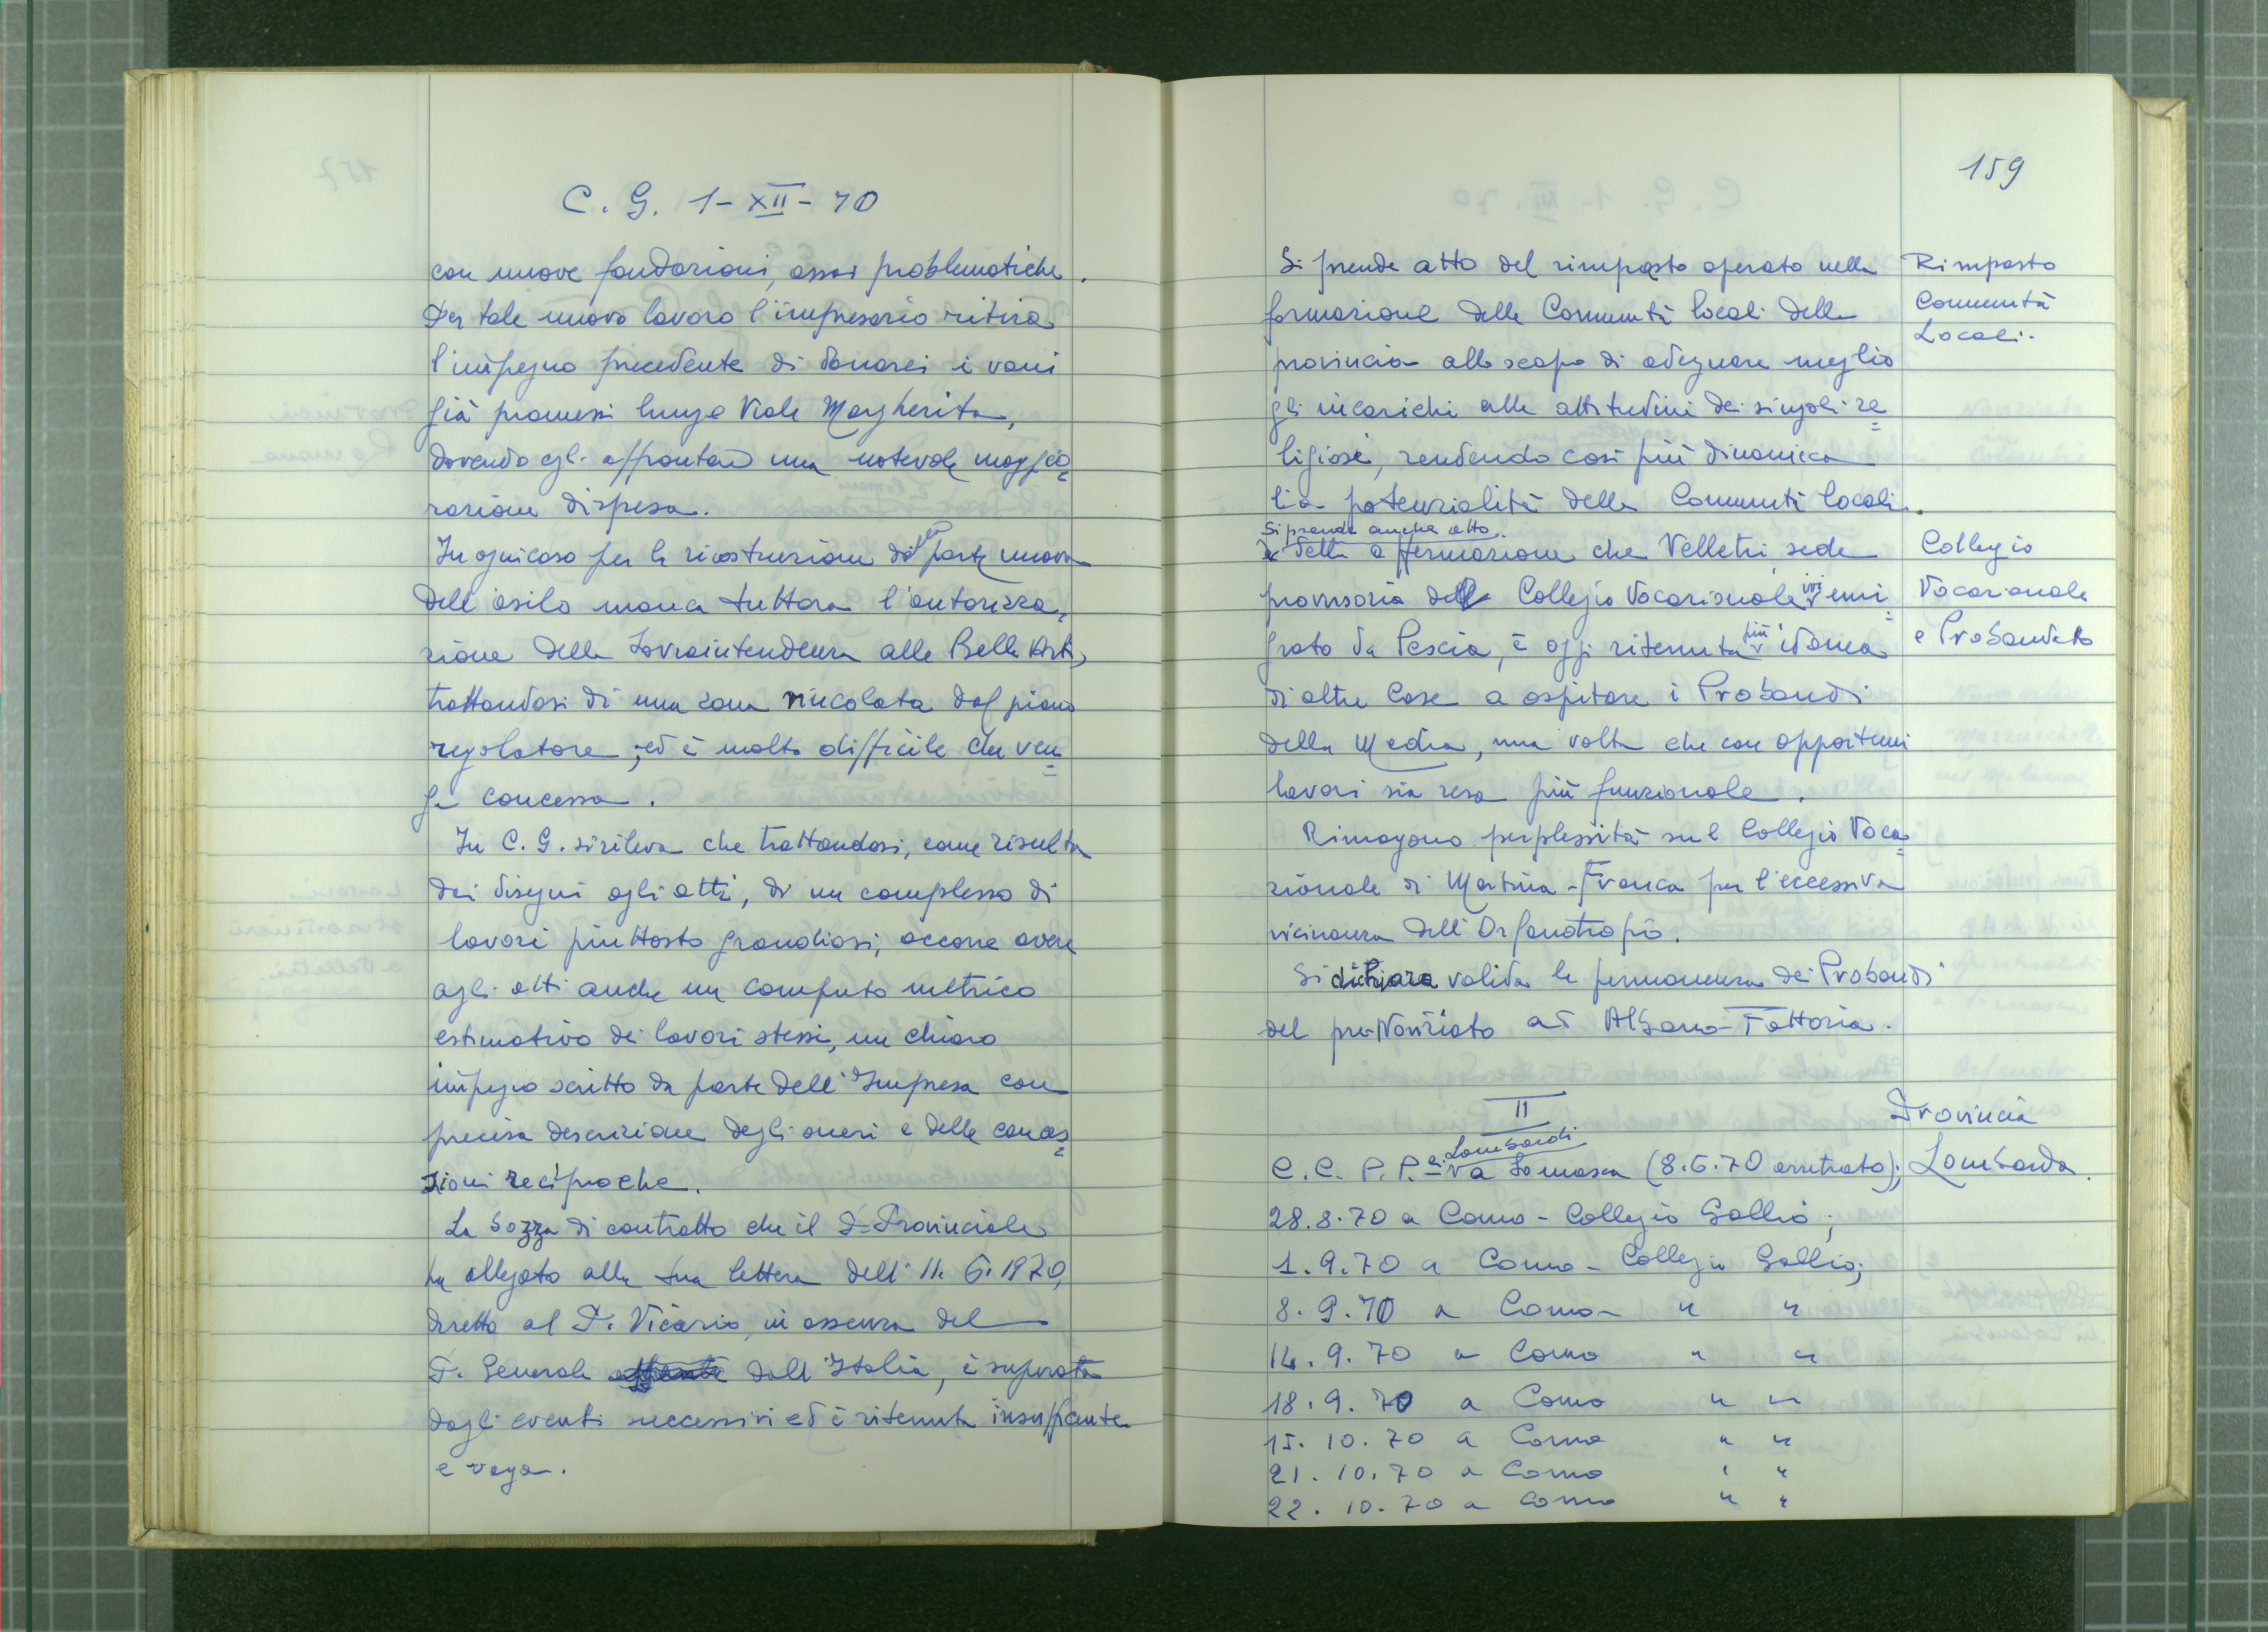 C. G. 1-XII-70
con nuove fondazioni, assai problematiche.
Per tale nuovo lavoro l'impresario ritira
l'impegno precedente di donarci i vani
già promessi lungo Viale Margherita,
dovendo egli affrontare una notevole maggio=
razione di spesa.
In ogni caso per la ricostruzione della parte nuova
dell'asilo manca tuttora l'autorizza=
zione della Sovraintendenza alle Belle Arti,
trattandosi di una zona vincolata dal piano
regolatore; ed è molto difficile che ven=
ga concessa.
In C. G. si rileva che trattandosi, come risulta
dai disegni agli atti, di un complesso di
lavori piuttosto grandiosi, occorre avere
agli atti anche un computo metrico
estimativo dei lavori stessi, un chiaro
impegno scritto da parte dell'Impresa con
precisa descrizione degli oneri e delle conces=
sioni reciproche.
La bozza di contratto che il P. Provinciale
ha allegato alla sua lettera dell'11.6.1970,
diretta al P. Vicario, in assenza del
P. Generale dall'Italia, è superata
dagli eventi successivi ed è ritenuta insufficiente
e vaga.
159
Si prende atto del rimpasto operato nella
formazione delle Comunità locali della
provincia allo scopo di adeguare meglio
gli incarichi alle attitudini dei singoli re=
ligiosi, rendendo così più dinamica
la potenzialità delle Comunità locali.
Si prende anche atto
della affermazione che Velletri, sede
provvisoria del Collegio Vocazionale ivi emi=
grato da Pescia, è oggi ritenuta più idonea
di altre Case a ospitare i Probandi
della Media, una volta che con opportuni
lavori sia resa più funzionale.
Rimangono perplessità sul Collegio Voca=
zionale di Martina-Franca per l'eccessiva
vicinanza dell'Orfanotrofio.
Si dichiara valida la permanenza dei Probandi
del pre-Noviziato ad Albano-Fattoria.
Rimpasto
Comunità
Locali.
Collegio
Vocazionale
e Probandato
II
Provincia
Lombarda.
C. C. P. P.li Lombardi a Somasca (8.6.70 arretrato);
28.8.70 a Como - Collegio Gallio;
1.9.70 a Como - Collegio Gallio;
8.9.70 a Como - " "
14.9.70 a Como " "
18.9.70 a Como " "
15.10.70 a Como " "
21.10.70 a Como " "
22.10.70 a Como " "